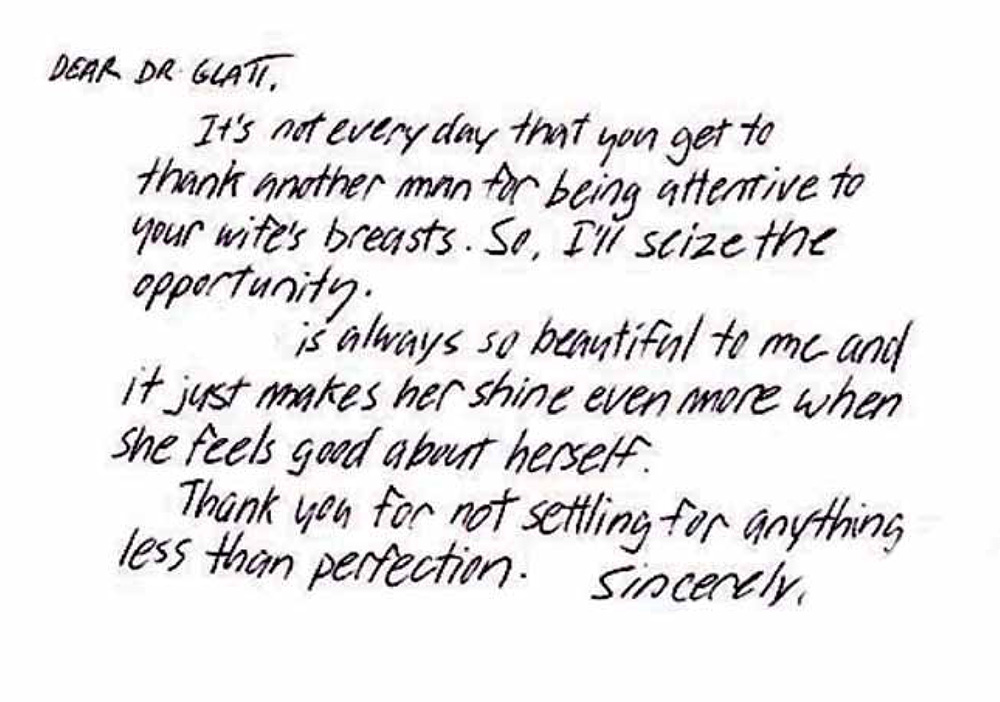 DEAR DR. GLATT,
It's not every day that you get to
thank another man for being attentive to
your wife's breasts. So, I'll seize the
opportunity.
is always so beautiful to me and
it just makes her shine even more when
she feels good about herself.
Thank you for not settling for anything
less than perfection. Sincerely,